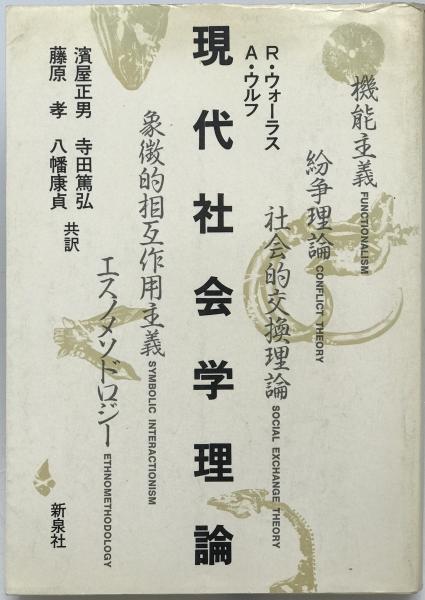 機能主義 FUNCTIONALISM
紛争理論 CONFLICT THEORY
社会的交換理論 SOCIAL EXCHANGE THEORY
R・ウォーラス
A・ウルフ
現代社会学理論
象徴的相互作用主義 SYMBOLIC INTERACTIONISM
エスノメソドロジー ETHNOMETHODOLOGY
濱屋正男 寺田篤弘
藤原 孝 八幡康貞
共訳
新泉社